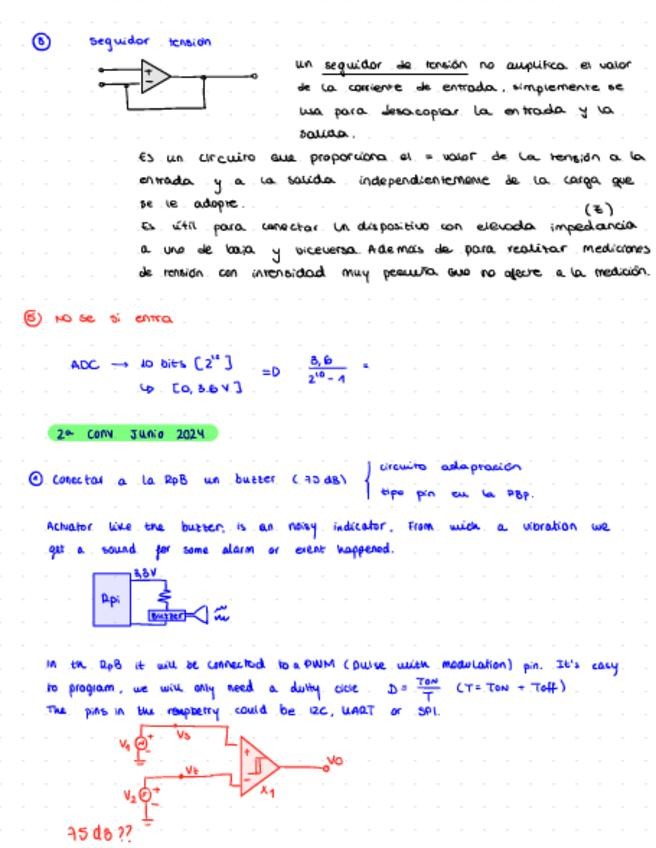 ③ seguidor tensión
un seguidor de tensión no amplifica el valor
de la corriente de entrada, simplemente se
usa para desacoplar la entrada y la
salida.
Es un circuito que proporciona el = valor de la tensión a la
entrada y a la salida independientemente de la carga que
se le adopte.
(Z)
Es útil para conectar un dispositivo con elevada impedancia
a uno de baja y viceversa. Además de para realizar mediciones
de tensión con intensidad muy pequeña que no afecte a la medición.
⑤ No se si entra
ADC → 10 bits [2¹⁰] =D 3,6 / 2¹⁰ - 1 =
↳ [0, 3.6 V]
2ª conv Junio 2024
Conectar a la RpB un buzzer (75 dB) { circuito adaptación
tipo pin en la RBp.
Actuator like the buzzer, is an noisy indicator. From wich a vibration we
get a sound for some alarm or event happened.
3,3V
Rpi
Buzzer
In th RpB it will be connected to a PWM (pulse width modulation) pin. It's easy
to program, we will only need a dutty cicle. D = TON / T (T = TON + Toff)
The pins in the raspberry could be I2C, UART or SPI.
V1 + - Vs
+ - VO
V2 + - Vt
X1
75 dB ??